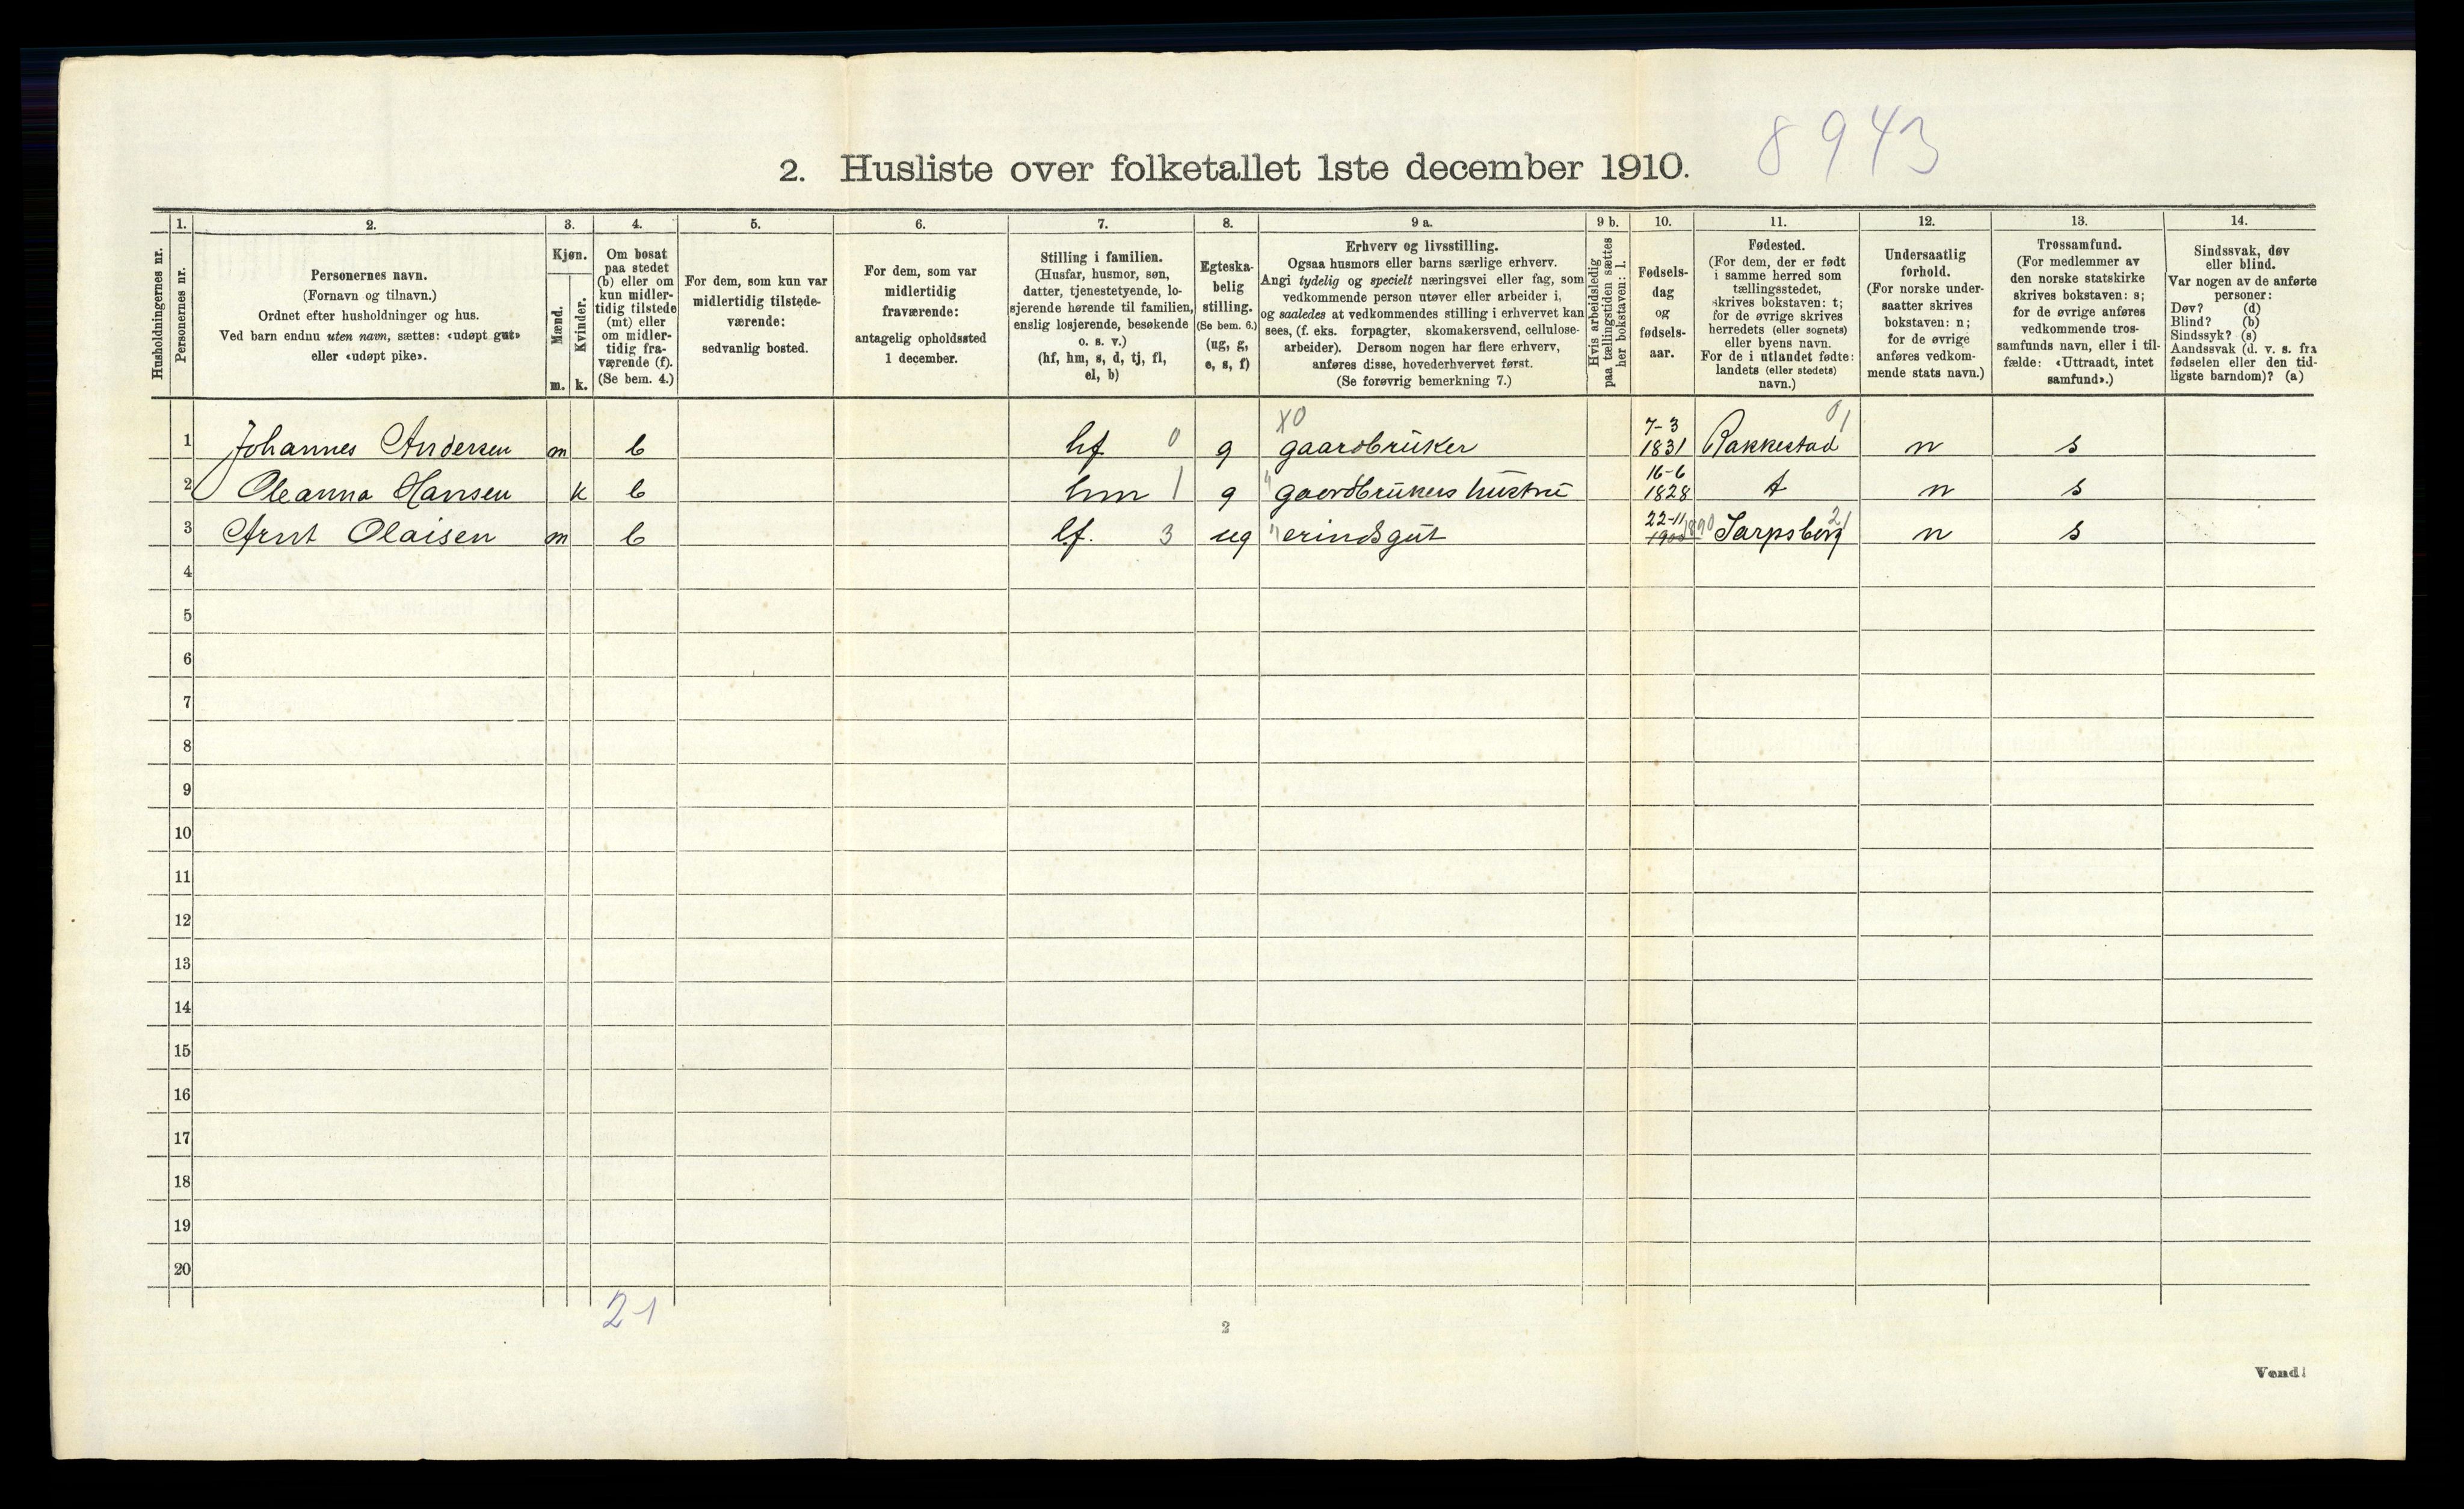 8943
2. Husliste over folketallet 1ste december 1910.
Husholdningernes nr.
1.
Personernes nr.
2.
Personernes navn.
(Fornavn og tilnavn.)
Ordnet efter husholdninger og hus.
Ved barn endnu uten navn, sættes: «udøpt gut»
eller «udøpt pike».
3.
Kjøn.
Mænd.
Kvinder.
m. k.
4.
Om bosat
paa stedet
(b) eller om
kun midler-
tidig tilstede
(mt) eller
om midler-
tidig fra-
værende (f).
(Se bem. 4.)
5.
For dem, som kun var
midlertidig tilstede-
værende:
sedvanlig bosted.
6.
For dem, som var
midlertidig
fraværende:
antagelig opholdssted
1 december.
7.
Stilling i familien.
(Husfar, husmor, søn,
datter, tjenestetyende, lo-
sjerende hørende til familien,
enslig losjerende, besøkende
o. s. v.)
(hf, hm, s, d, tj, fl,
el, b)
8.
Egteska-
belig
stilling.
(Se bem. 6.)
(ug, g,
e, s, f)
9 a.
Erhverv og livsstilling.
Ogsaa husmors eller barns særlige erhverv.
Angi tydelig og specielt næringsvei eller fag, som
vedkommende person utøver eller arbeider i,
og saaledes at vedkommendes stilling i erhvervet kan
sees, (f. eks. forpagter, skomakersvend, cellulose-
arbeider). Dersom nogen har flere erhverv,
anføres disse, hovederhvervet først.
(Se forøvrig bemerkning 7.)
9 b.
Hvis arbeidsledig
paa tællingstiden sættes
her bokstaven: l.
10.
Fødsels-
dag
og
fødsels-
aar.
11.
Fødested.
(For dem, der er født
i samme herred som
tællingsstedet,
skrives bokstaven: t;
for de øvrige skrives
herredets (eller sognets)
eller byens navn.
For de i utlandet fødte:
landets (eller stedets)
navn.)
12.
Undersaatlig
forhold.
(For norske under-
saatter skrives
bokstaven: n;
for de øvrige
anføres vedkom-
mende stats navn.)
13.
Trossamfund.
(For medlemmer av
den norske statskirke
skrives bokstaven: s;
for de øvrige anføres
vedkommende tros-
samfunds navn, eller i til-
fælde: «Uttraadt, intet
samfund».)
14.
Sindssvak, døv
eller blind.
Var nogen av de anførte
personer:
Døv? (d)
Blind? (b)
Sindssyk? (s)
Aandssvak (d. v. s. fra
fødselen eller den tid-
ligste barndom)? (a)
1 Johannes Andersen m b hf 0 g X0 gaardbruker 7-3 1831 Rakkestad 01 n s
2 Oleanna Hansen k b hm 1 g " gaardbrukers hustru 16-6 1828 t n s
3 Arnt Olaisen m b lf. 3 ug " erindsgut 22-11 1900 1890 Sarpsborg 21 n s
4
5
6
7
8
9
10
11
12
13
14
15
16
17
18
19
20
2-1
2
Vend!